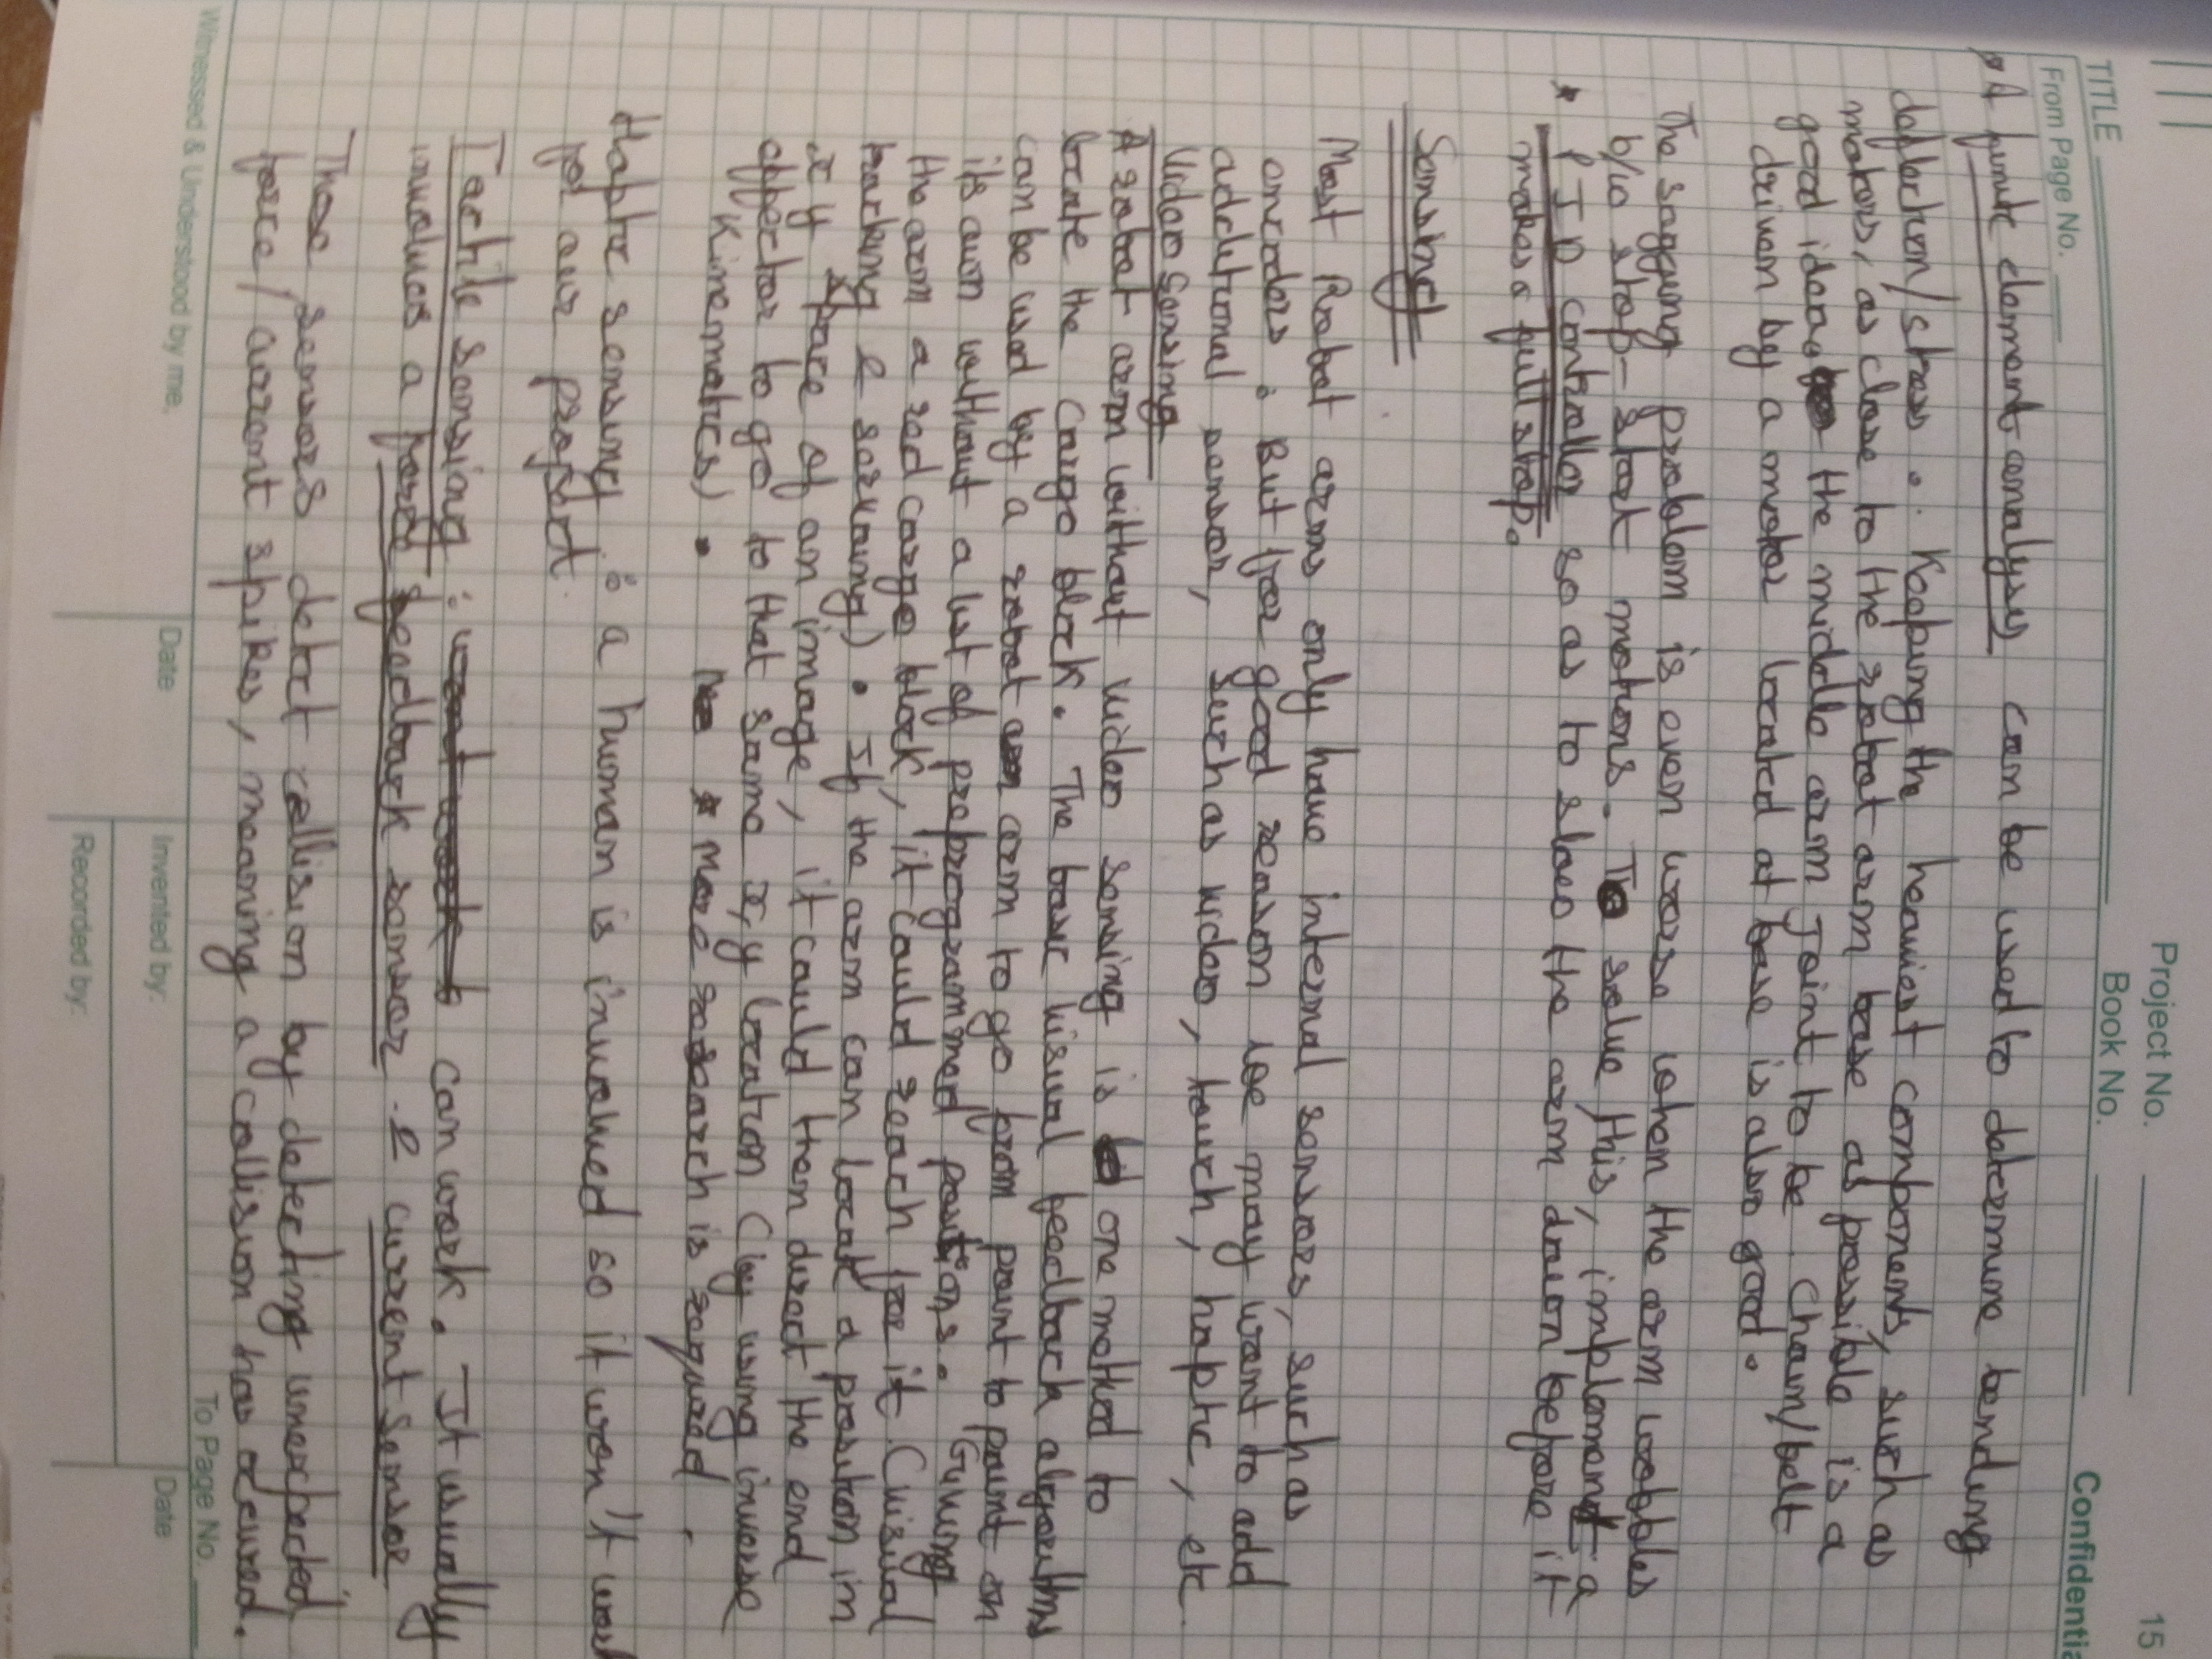 15
Project No.
Book No.
Confidentia
TITLE
From Page No.
* A finite element analysis can be used to determine bending
deflection/stress. Keeping the heaviest components, such as
motors, as close to the robot arm base as possible is a
good idea. the middle arm joint to be chain/belt
driven by a motor located at base is also good.
The sagging problem is even worse when the arm wobbles
b/w stop-start motions. To solve this, implement a
* PID controller so as to slow the arm down before it
makes a full stop.
Sensing
Most Robot arms only have internal sensors, such as
encoders. But for good reason we may want to add
additional sensor, such as video, touch, haptic, etc.
Video Sensing
A robot arm without video sensing is one method to
locate the Cargo block. The basic visual feedback algorithms
can be used by a robot arm to go from point to point on
its own without a list of preprogrammed positions. Giving
the arm a red cargo block, it could reach for it (visual
tracking & servoing). If the arm can locate a position in
x y space of an image, it could then direct the end
effector to go to that same x,y location (by using inverse
Kinematics). * More research is required.
Haptic sensing: a human is involved so it won't work
for our project.
Tactile sensing: can work. It usually
involves a force feedback sensor & current sensor
These sensors detect collision by detecting unexpected
force/current spikes, meaning a collision has occured.
Witnessed & Understood by me,
Date
Invented by:
Recorded by:
To Page No.
Date